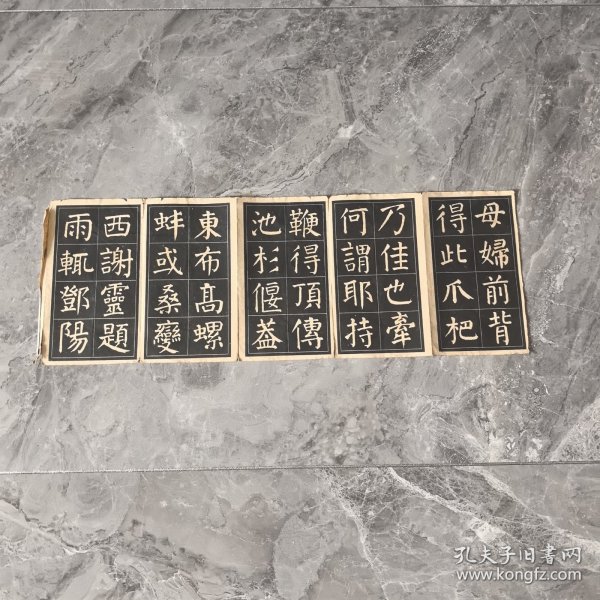 母婦前背
得此爪杷
乃佳也牽
何謂耶持
鞭得頂傳
池杉偃蓋
東布高螺
蚌或桑變
西謝靈題
雨輒鄧陽
孔夫子旧书网
www.kongfz.com